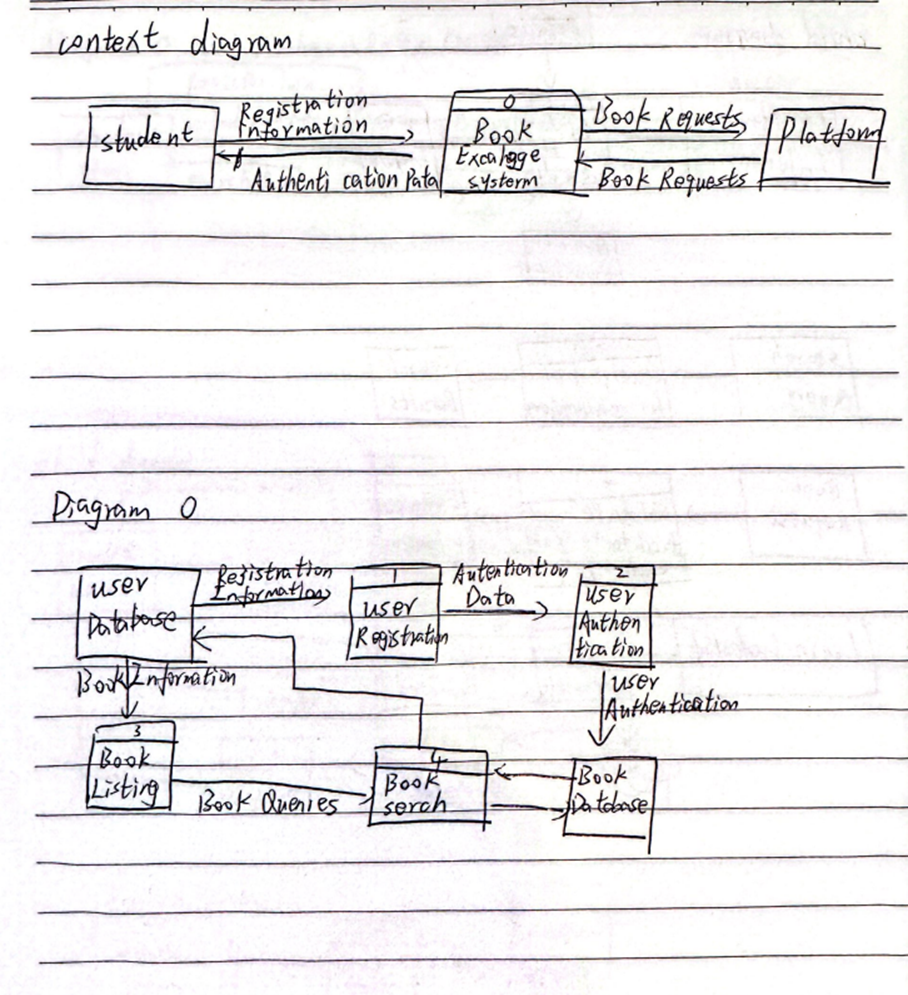 context diagram
student
Registration
Information
Authenti cation Data
0
Book
Excalgge
systerm
Book Requests
Book Requests
Platform
Diagram 0
user
Database
Registration
Information
1
user
Registration
Autentication
Data
2
user
Authen
tication
Book Information
user
Authentication
3
Book
Listing
Book Queries
4
Book
serch
Book
Database